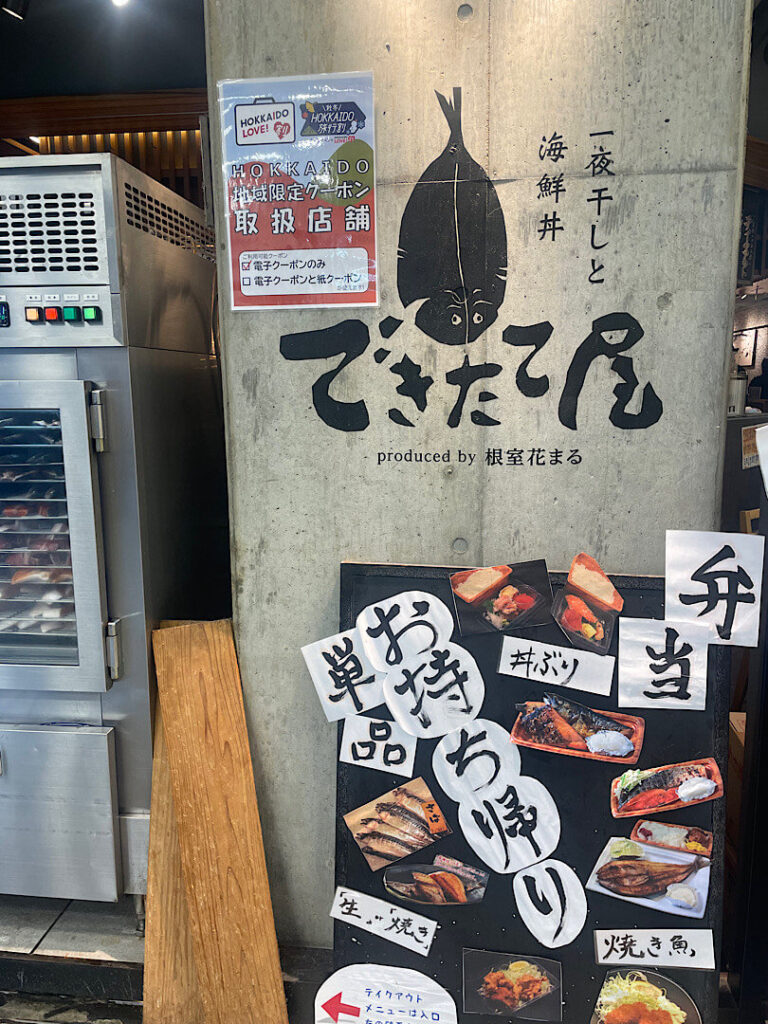 HOKKAIDO
LOVE!
割
HOKKAIDO
旅行割
HOKKAIDO
地域限定クーポン
取扱店舗
ご利用可能クーポン
電子クーポンのみ
電子クーポンと紙クーポン
一夜干しと
海鮮丼
できたて屋
produced by 根室花まる
弁当
お持ち帰り
単品
丼ぶり
さば
「生」・「焼き」
焼き魚
テイクアウト
メニューは入口